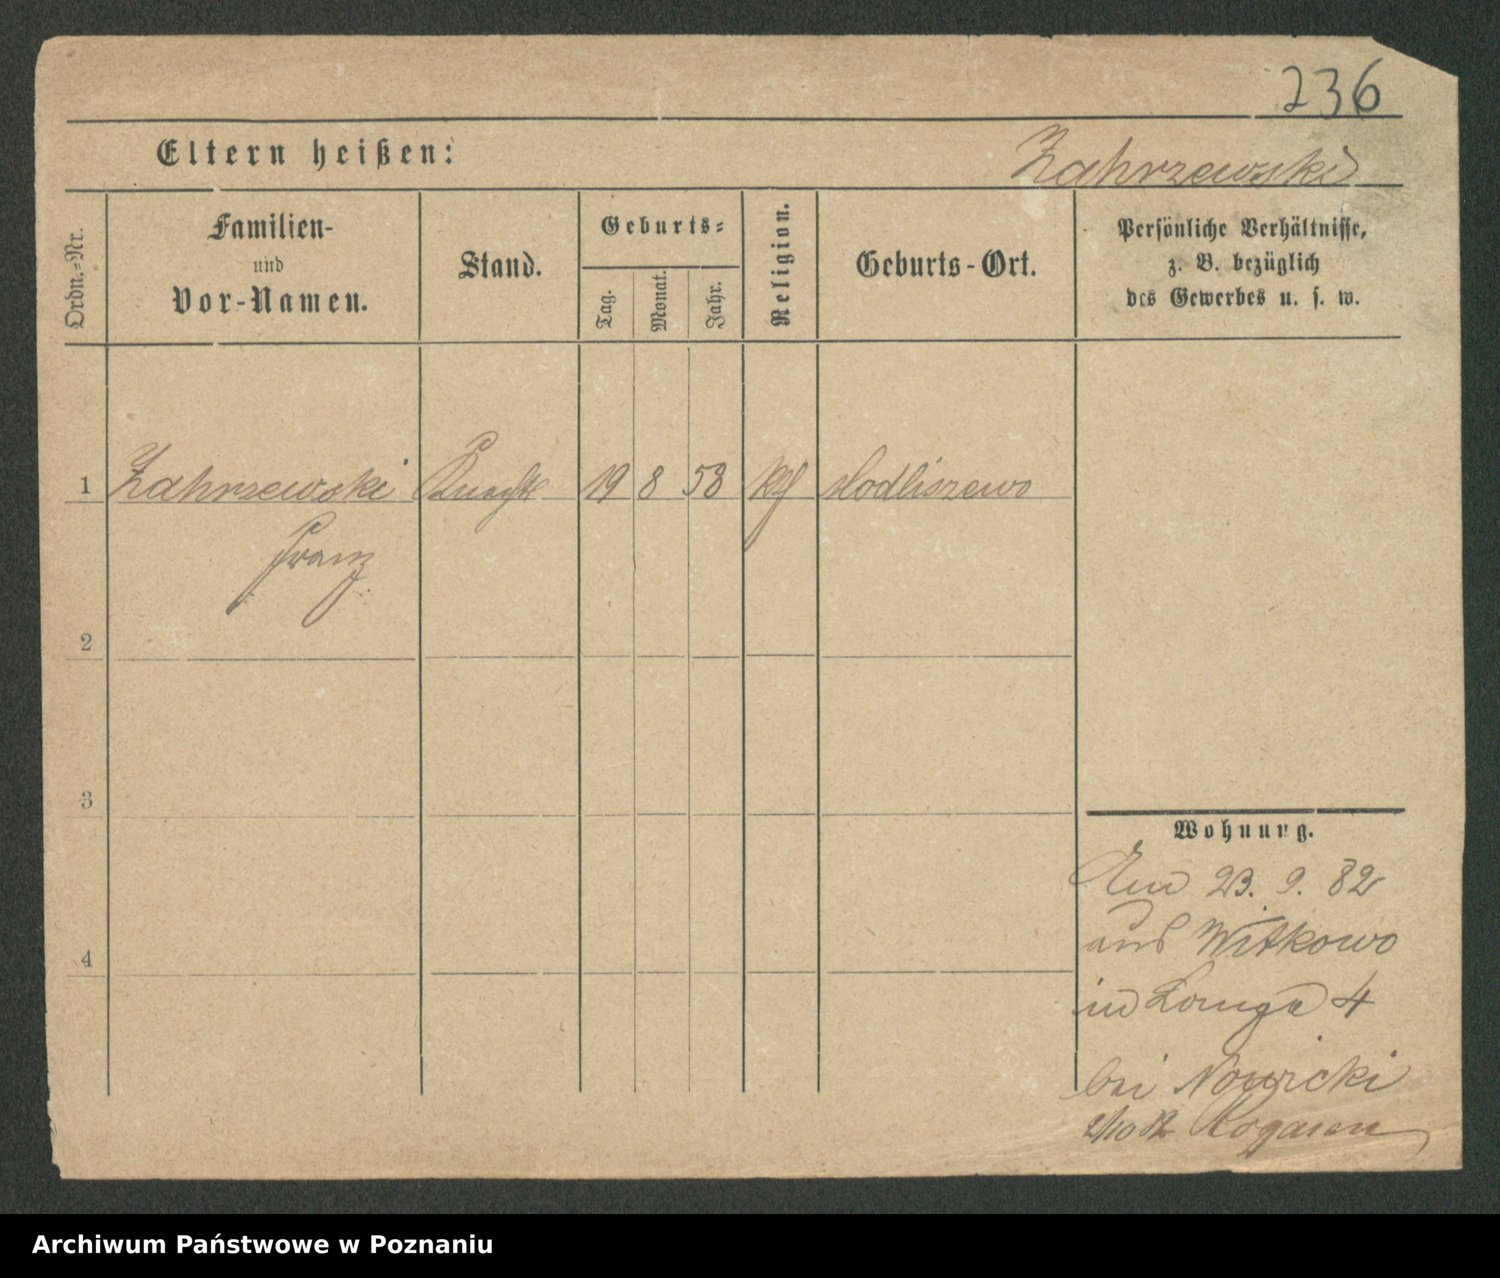 236
Eltern heißen:
Zahrzewski
Ordn.-Nr.
Familien-
und
Vor-Namen.
Stand.
Geburts-
Tag.
Monat.
Jahr.
Religion.
Geburts-Ort.
Persönliche Verhältnisse,
z. B. bezüglich
des Gewerbes u. s. w.
1 Zahrzewski Knecht 19 8 58 kth Modliszewo
Franz
2
3
4
Wohnung.
23. 9. 82
aus Witkowo
in 4
bei Nowicki
2/10 82 Rogasen
Archiwum Państwowe w Poznaniu